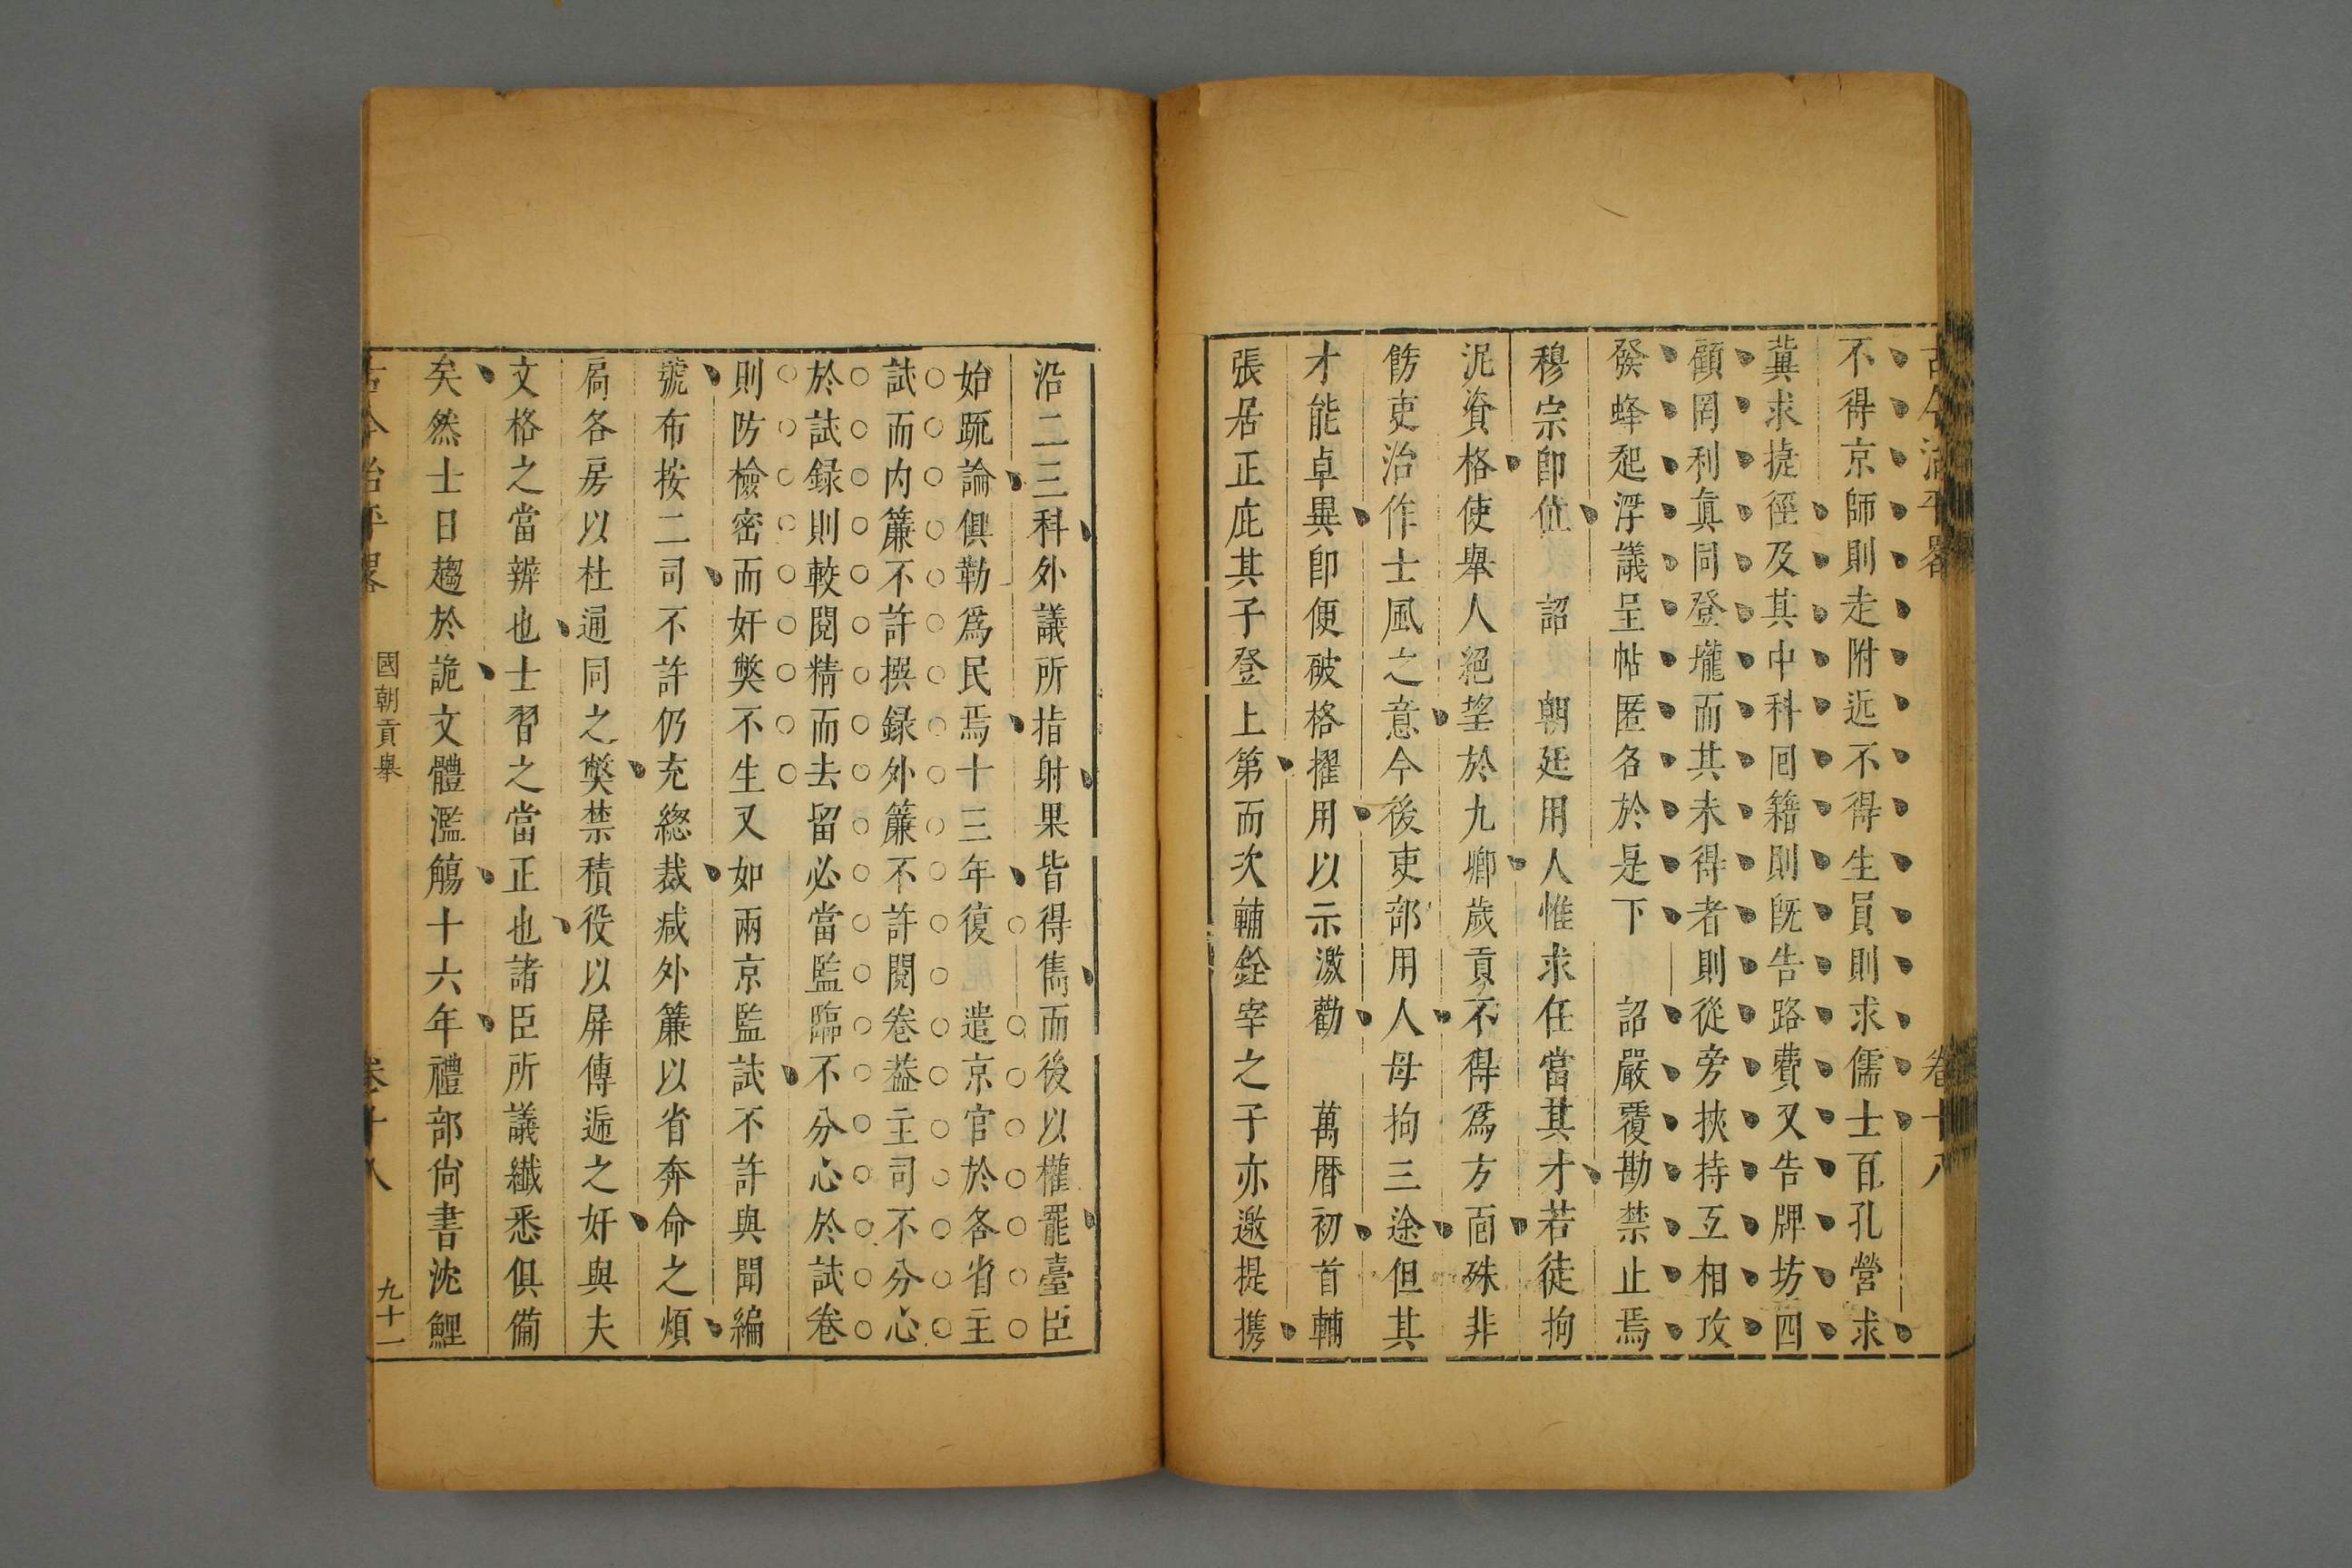 古今治平畧 卷十八
不得京師則走附近不得生員則求儒士百孔營求
冀求捷徑及其中科囘籍則既告路費又告牌坊四
顧罔利眞同登壠而其未得者則從旁挾持互相攻
發蜂起浮議呈帖匿名於是下 詔嚴覆勘禁止焉
穆宗卽位 詔 朝廷用人惟求任當其才若徒拘
泥資格使舉人絕望於九卿歲貢不得爲方面殊非
飭吏治作士風之意今後吏部用人毋拘三途但其
才能卓異卽便破格擢用以示激勸 萬曆初首輔
張居正庇其子登上第而次輔銓宰之子亦邀提携
沿二三科外議所指射果皆得雋而後以權罷臺臣
始䟽論俱勒爲民焉十三年復 遣京官於各省主
試而內簾不許撰録外簾不許閱卷葢主司不分心
於試録則較閱精而去留必當監臨不分心於試卷
則防檢密而奸獘不生又如兩京監試不許與聞編
號布按二司不許仍充總裁减外簾以省奔命之煩
扃各房以杜通同之獘禁積役以屏傳遞之奸與夫
文格之當辨也士習之當正也諸臣所議纖悉俱備
矣然士日趨於詭文體濫觴十六年禮部尚書沈鯉
古今治平畧 國朝貢舉 卷十八 九十一